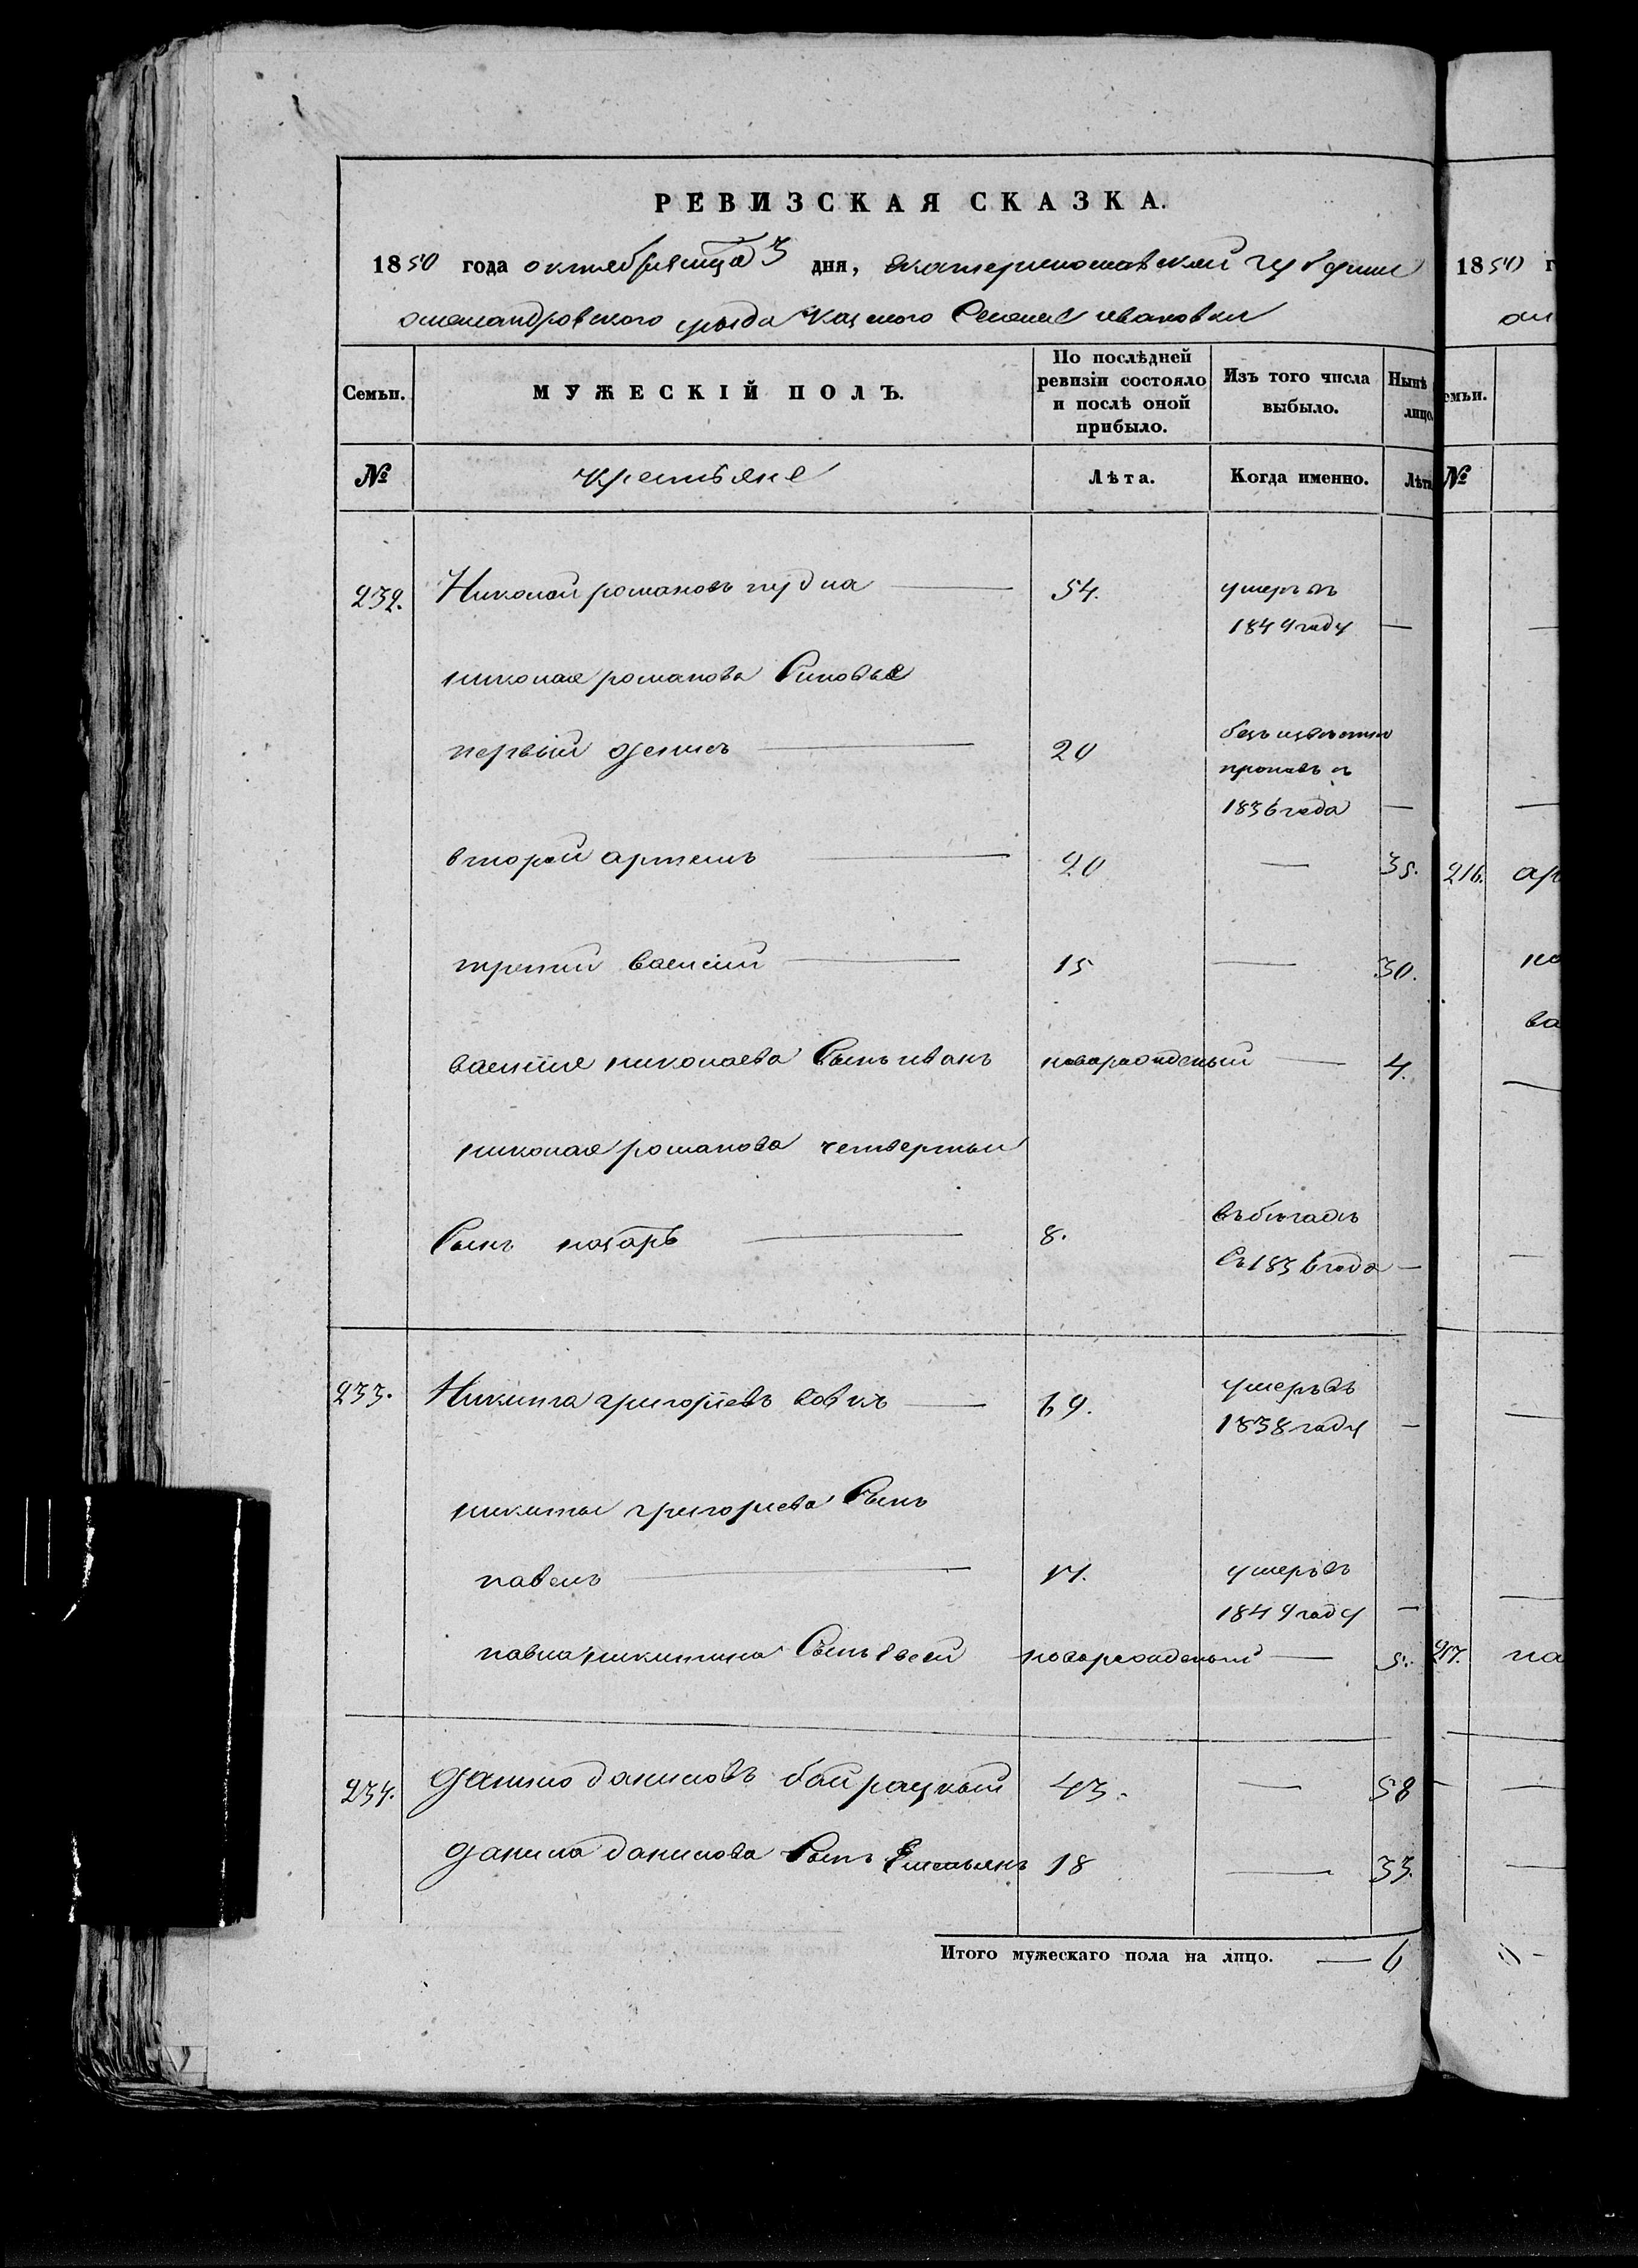 РЕВИЗСКАЯ СКАЗКА.
1850 года октября мца 3 дня, Екатеринославской губернии
александровского уезда казеного Селения ивановки
Семьи.
МУЖЕСКІЙ ПОЛЪ.
По послѣдней ревизіи состояло и послѣ оной прибыло.
Изъ того числа выбыло.
Нынѣ лицо
№
крестьяне
Лѣта.
Когда именно.
Лѣта
232. Николай романовъ 54. умеръ въ
1849 году —
николая романова Синовья
первый денисъ 20 безъ известно
пропавъ съ
1836 года —
второй артемъ 20 — 35.
третий василий 15 — 30.
василия николаева Сынъ иванъ новорожденый — 4.
николая романова четвертый
Сынъ назаръ 8. въ бегахъ
Съ 1836 года —
233. Никита григориевъ вовкъ 69. умеръ въ
1838 году —
никиты григориева Сынъ
павелъ 17. умеръ въ
1849 году —
павла никитина Сынъ новорожденый — 5.
234. данило даниловъ байрацкый 43. — 58
данила данилова Сынъ Емельянъ 18 — 33.
Итого мужескаго пола на лицо. — 6
1850 г
ал
емьи.
№
216. ар
но
ва
217. па